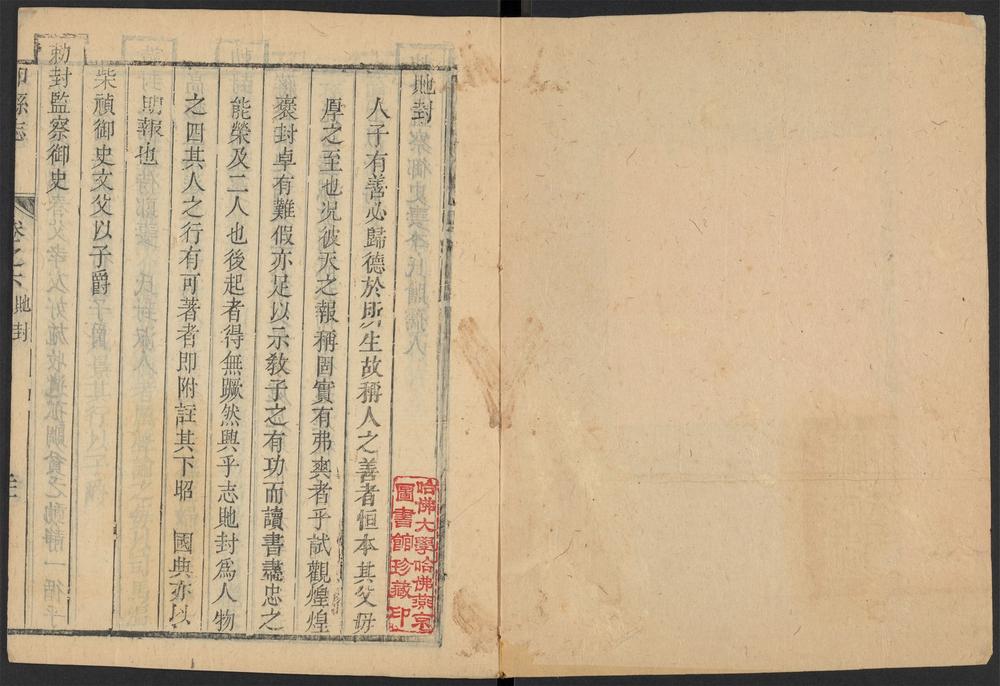 貤封
人子有善必歸德於所生故稱人之善者恒本其父母
厚之至也况彼天之報稱固實有弗爽者乎試觀煌煌
褒封卓有難假亦足以示敎子之有功而讀書盡忠之
能榮及二人也後起者得無蹶然興乎志貤封爲人物
之四其人之行有可著者即附註其下昭 國典亦以
期報也
柴禎御史文父以子爵
勑封監察御史
縣志
卷之六 貤封
哈佛大學哈佛燕京
圖書館珍藏印